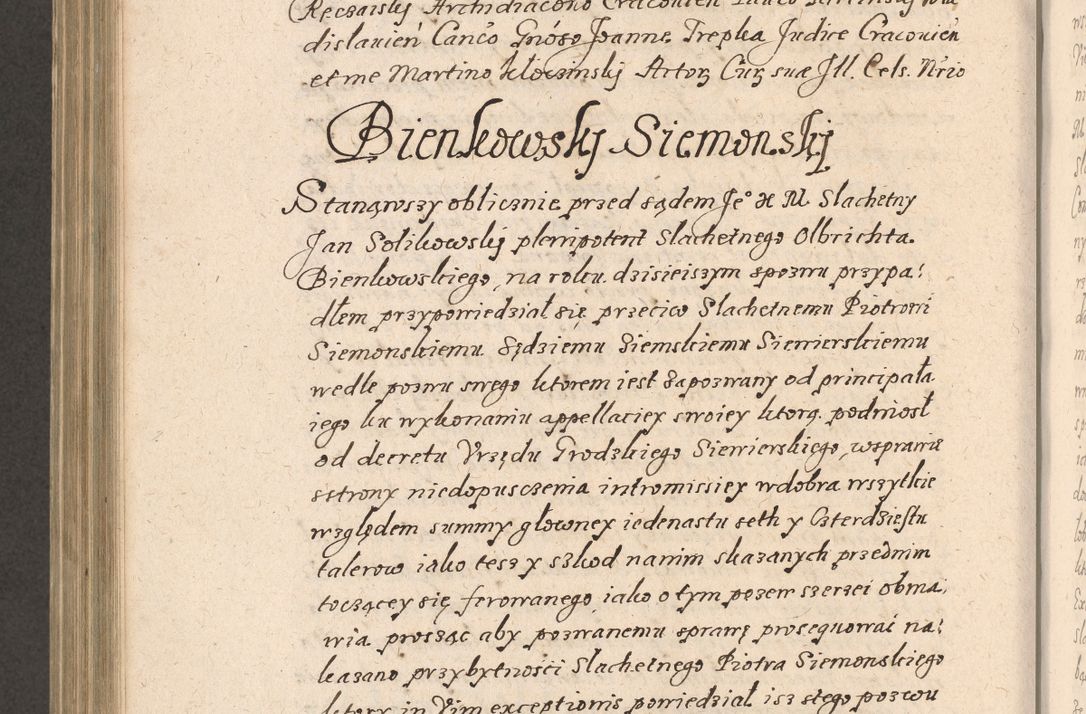 Ręczaisky Archidiacono Cracovien
dislavień Canćo Gnóso Joanne Trepka Judice Cracovień
et me Martino Kłoczinskÿ Actorz Curz suæ Jll. Cels. Nrio
Bienkowskÿ Siemonskÿ
Stanąwszy oblicznie przed sądem Jeº X M. Slachetny
Jan Solikowskÿ plenipotent Slachetnego Olbrichta.
Bienkowskiego, na roku dzisieiszym spozwu przypa:
dłem przypowiedział się przeciw Slachetnemu Piotrowi
Siemonskiemu Sędziemu Ziemskiemu Siewierskiemu
wedle pozwu swego ktorem iest zapozwany od principała
iego ku wykonaniu appellaciey swoiey ktorą podniosł
od decretu Vrzędu Grodzkiego Siewierskiego, wsprawie
zstrony niedopusczenia intromissiey wdobra wszytkie
względem summy głowney iedenastu seth y Czterdziestu
talerow iako tesz y szkod nanim skazanych przednim
toczącey się ferowanego, iako o tym pozew szerzei obma,
wia prosząc aby pozwanemu sprawę prosequować na:
kazano przybytności Slachetnego Piotra Siemonskiego
ktory in Vim exceptionis powiedział isz ztego pozwu